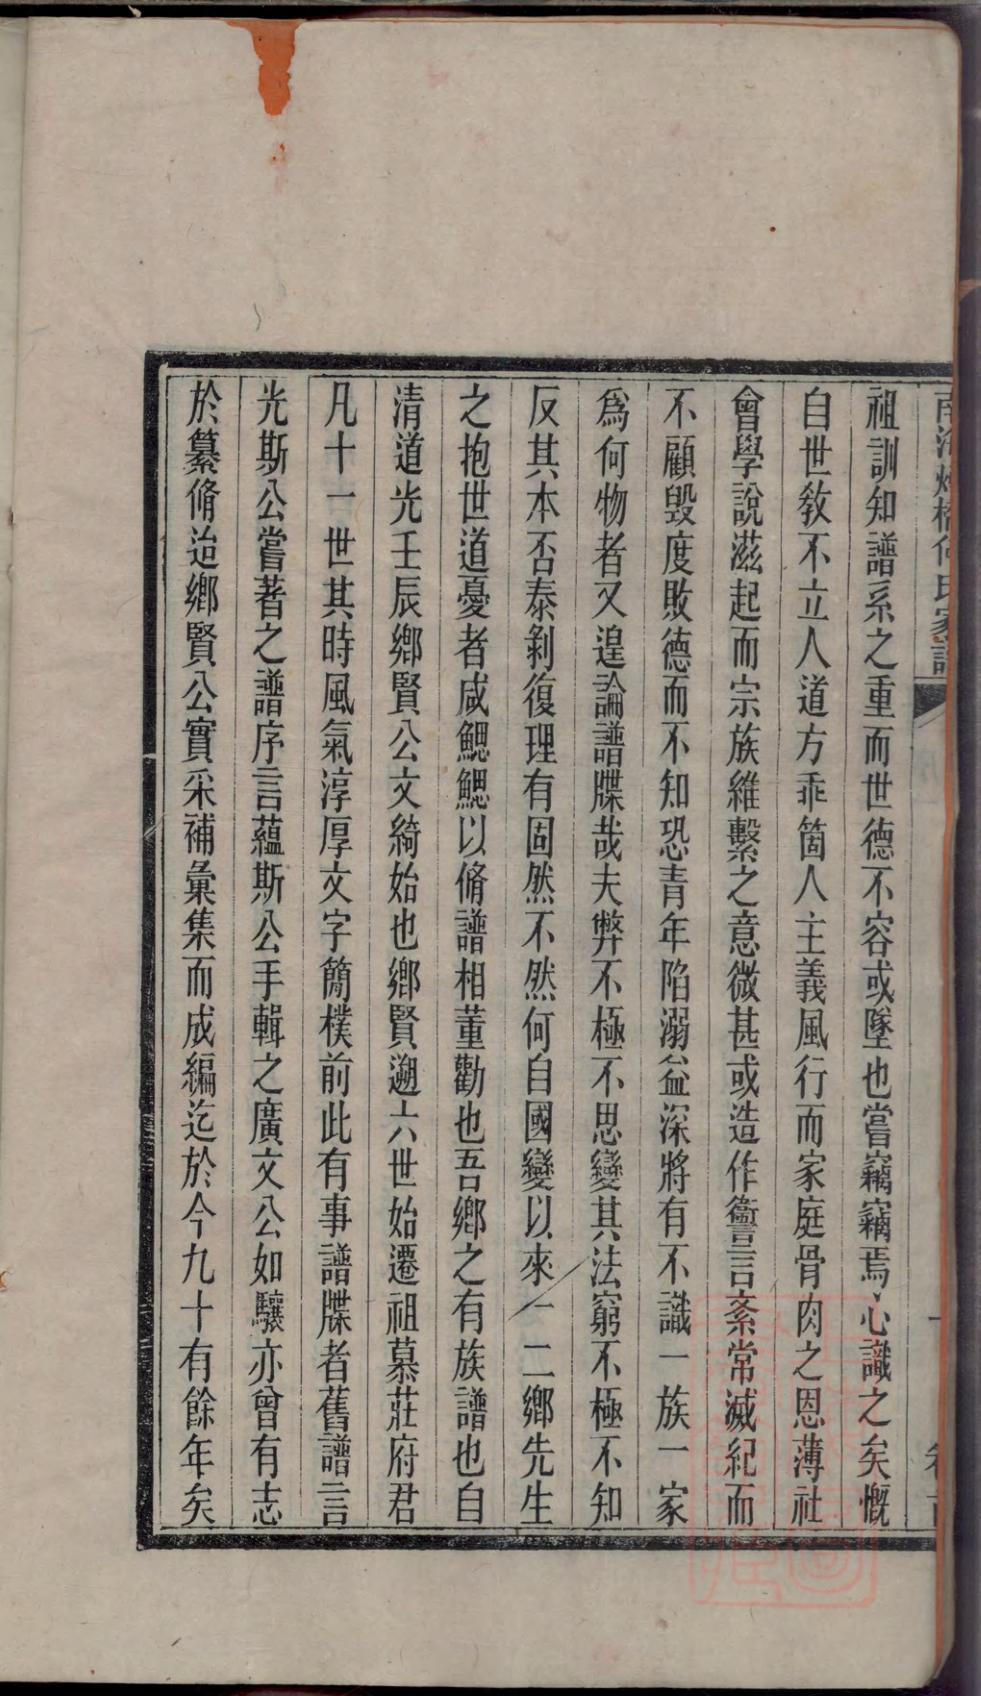 南海煙橋何氏家譜
祖訓知譜系之重而世德不容或墜也嘗竊竊焉心識之矣慨
自世敎不立人道方乖箇人主義風行而家庭骨肉之恩薄社
會學說滋起而宗族維繫之意微甚或造作讏言紊常滅紀而
不顧毀度敗德而不知恐青年陷溺益深將有不識一族一家
爲何物者又遑論譜牒哉夫弊不極不思變其法窮不極不知
反其本否泰剝復理有固然不然何自國變以來一二鄉先生
之抱世道憂者咸鰓鰓以脩譜相董勸也吾鄉之有族譜也自
清道光壬辰鄉賢公文綺始也鄉賢遡六世始遷祖慕莊府君
凡十一世其時風氣淳厚文字簡樸前此有事譜牒者舊譜言
光斯公嘗著之譜序言蘊斯公手輯之廣文公如驤亦曾有志
於纂脩迨鄉賢公實采補彙集而成編迄於今九十有餘年矣